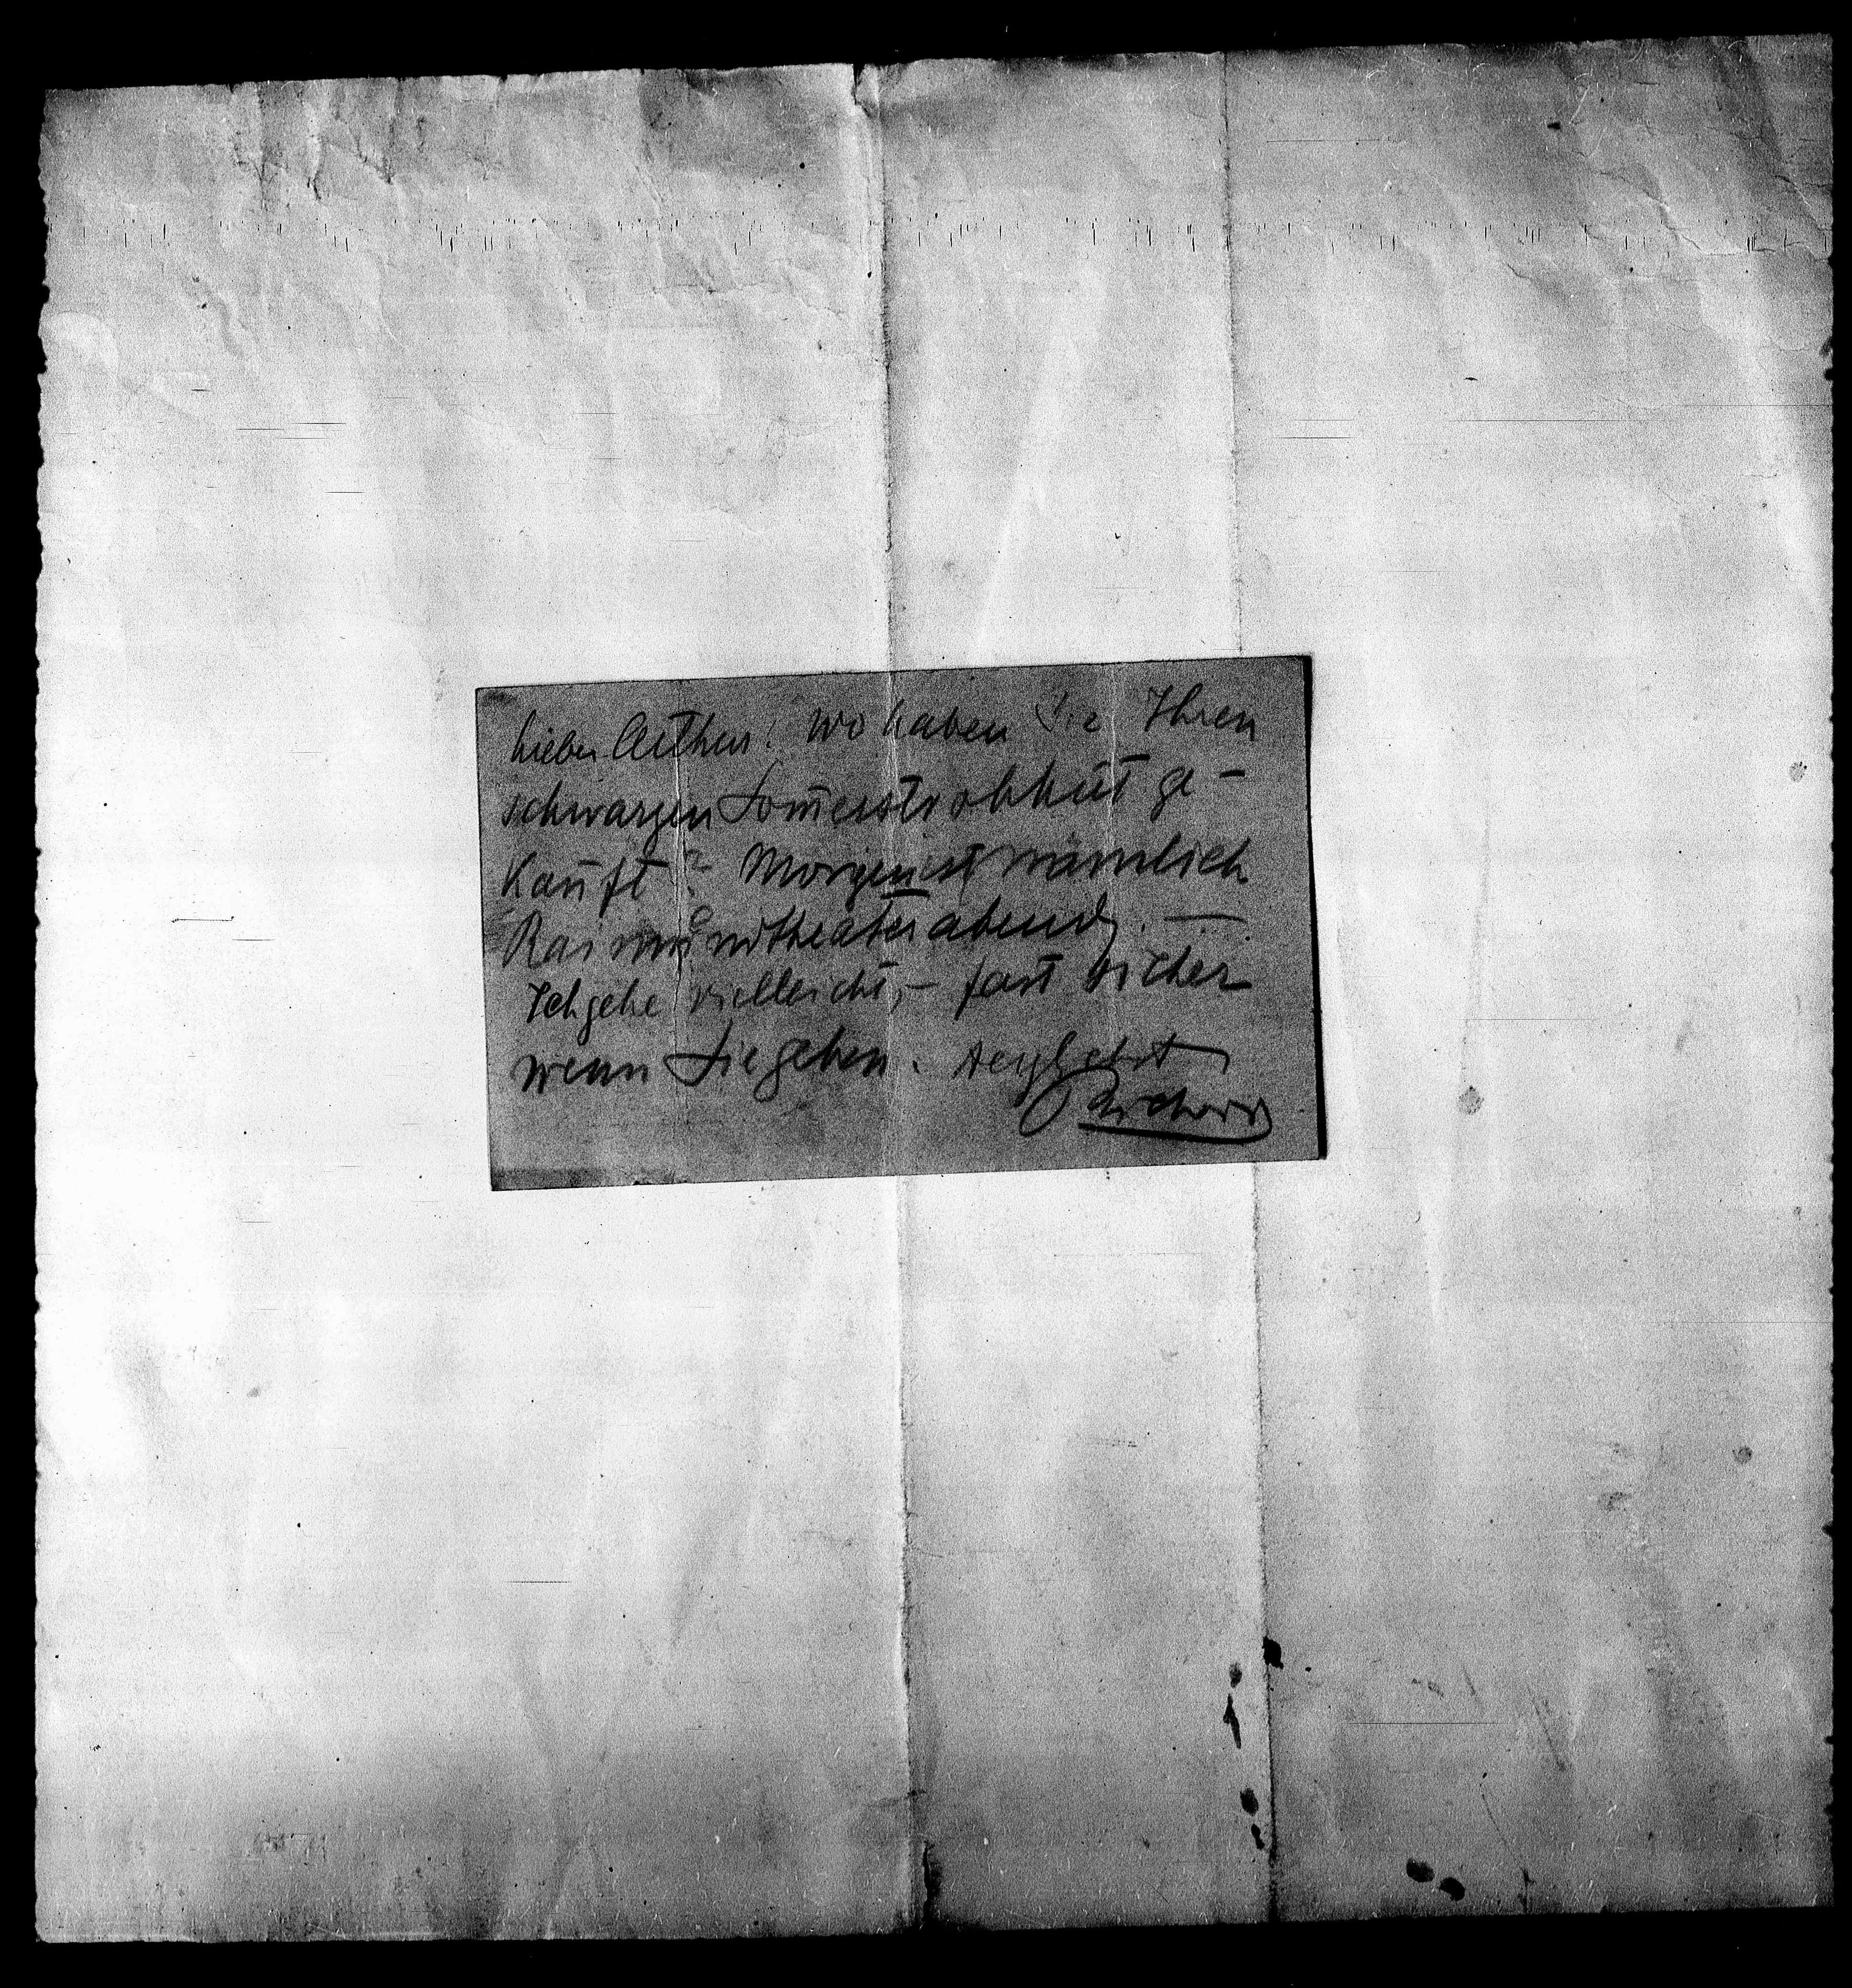 Lieber Arthur! Wo haben Sie Ihren
schwarzen Som̅erstrohhut ge-
kauft? Morgen ist nämlich
Raimundtheaterabend. —
Ich gehe vielleicht, – fast sicher
wenn Sie gehen. Herzlichst
Richard